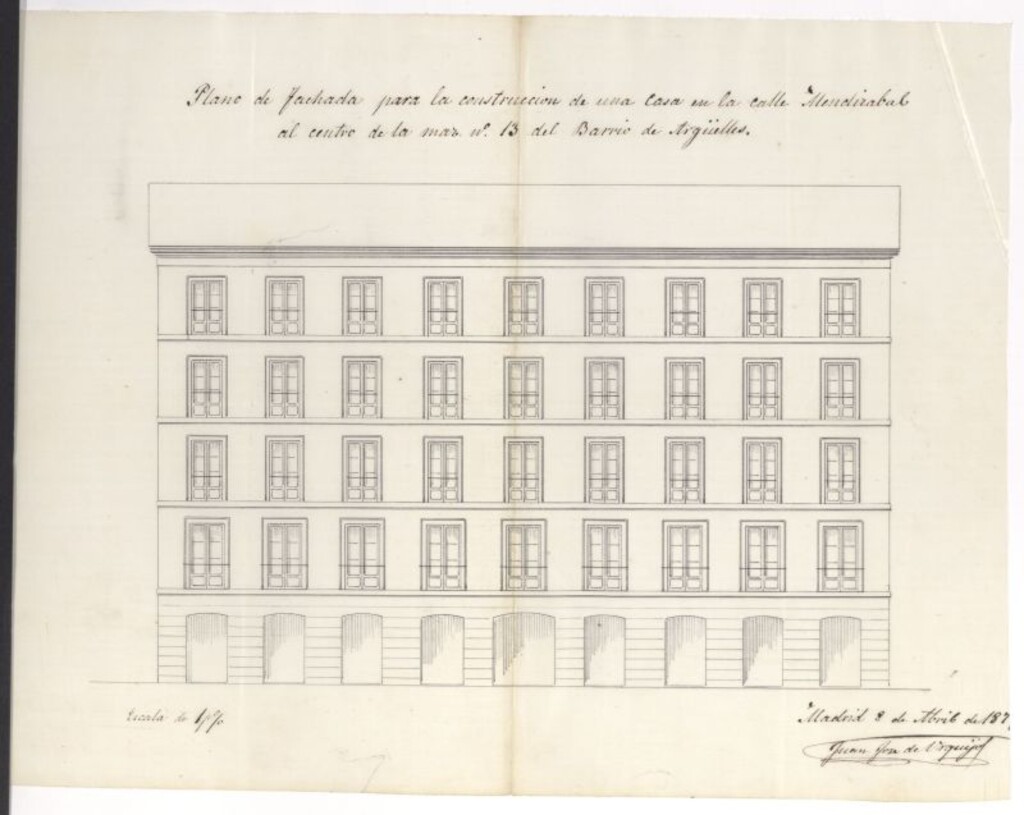 Plano de fachada para la construccion de una casa en la calle Mendizabal
al centro de la maz. nº. 13 del Barrio de Argüelles.
Escala de 1 p%
Madrid 8 de Abril de 187
Juan José de Urquijo